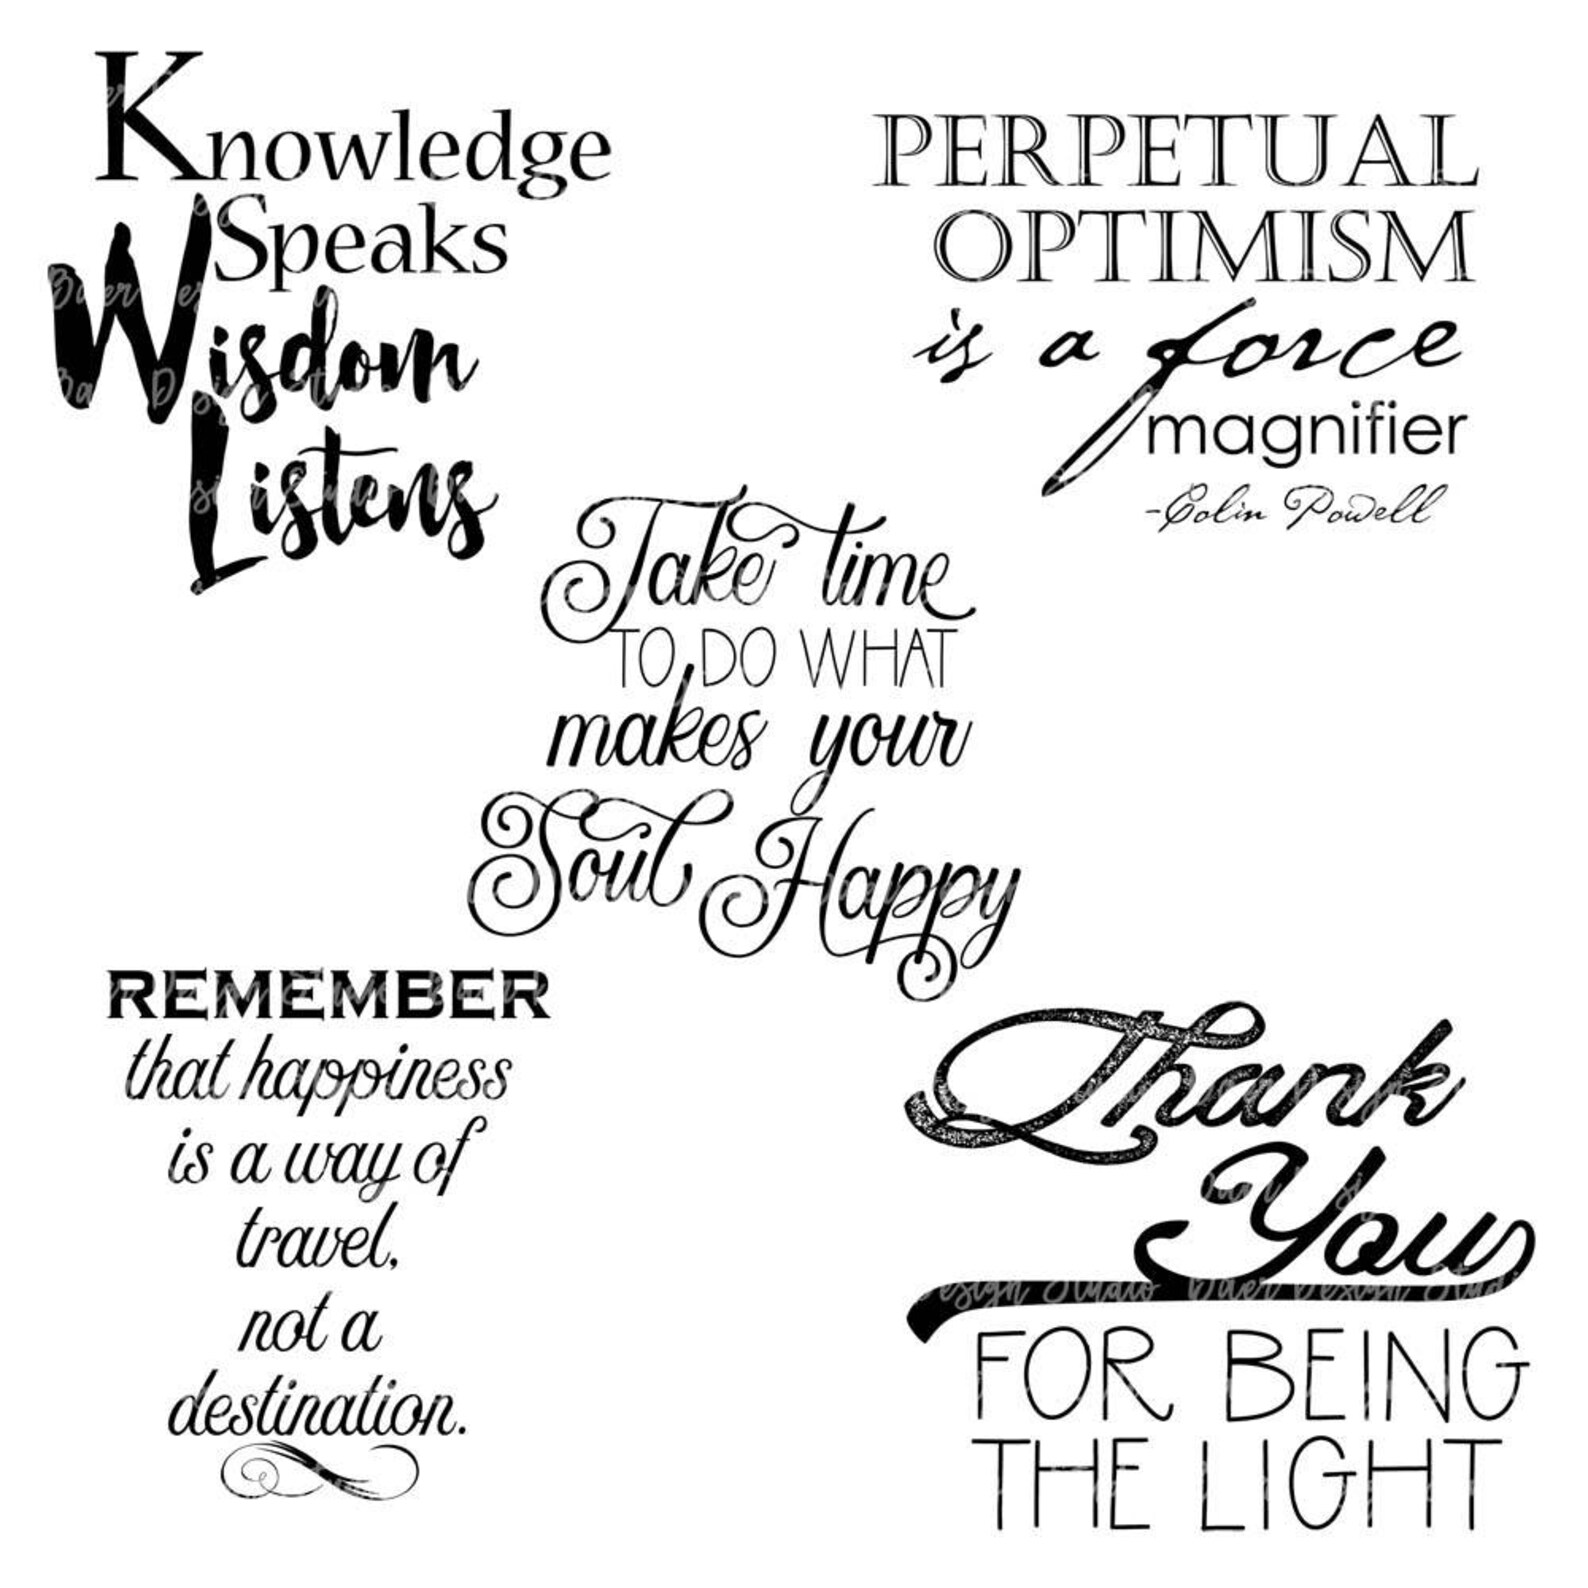 Knowledge
Speaks
Wisdom
Listens
PERPETUAL
OPTIMISM
is a force
magnifier
-Colin Powell
Take time
TO DO WHAT
makes your
Soul Happy
REMEMBER
that happiness
is a way of
travel,
not a
destination.
Thank
You
Design Studio Baer Design Studi
FOR BEING
THE LIGHT